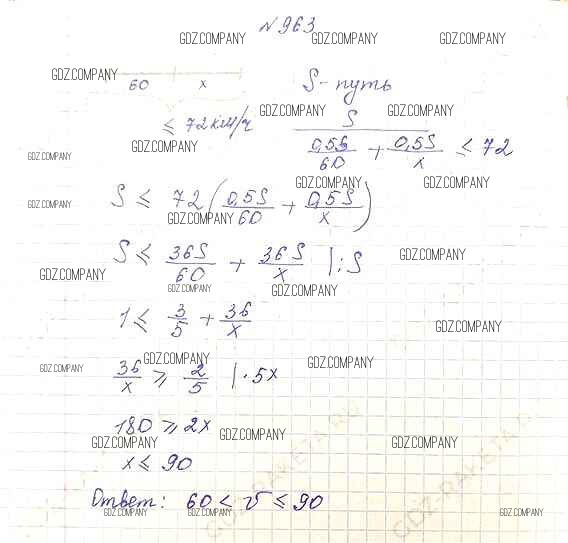 №963
GDZ.COMPANY GDZ.COMPANY GDZ.COMPANY
GDZ.COMPANY
60 x S - путь
GDZ.COMPANY GDZ.COMPANY
≤ 72 км/ч S / (0,5S/60 + 0,5S/x) ≤ 72
GDZ.COMPANY
GDZ.COMPANY
GDZ.COMPANY GDZ.COMPANY
S ≤ 72 (0,5S/60 + 0,5S/x)
GDZ.COMPANY GDZ.COMPANY
S ≤ 36S/60 + 36S/x |:S
GDZ.COMPANY
GDZ.COMPANY
GDZ.COMPANY GDZ.COMPANY
1 ≤ 3/5 + 36/x
GDZ.COMPANY
GDZ.COMPANY GDZ.COMPANY
GDZ.COMPANY
36/x ≥ 2/5 |·5x
180 ≥ 2x
GDZ.COMPANY GDZ.COMPANY GDZ.COMPANY
x ≤ 90
Ответ: 60 < v ≤ 90
GDZ.COMPANY GDZ.COMPANY GDZ.COMPANY GDZ.COMPANY
GDZ-RAKETA.RU GDZ-RAKETA.RU